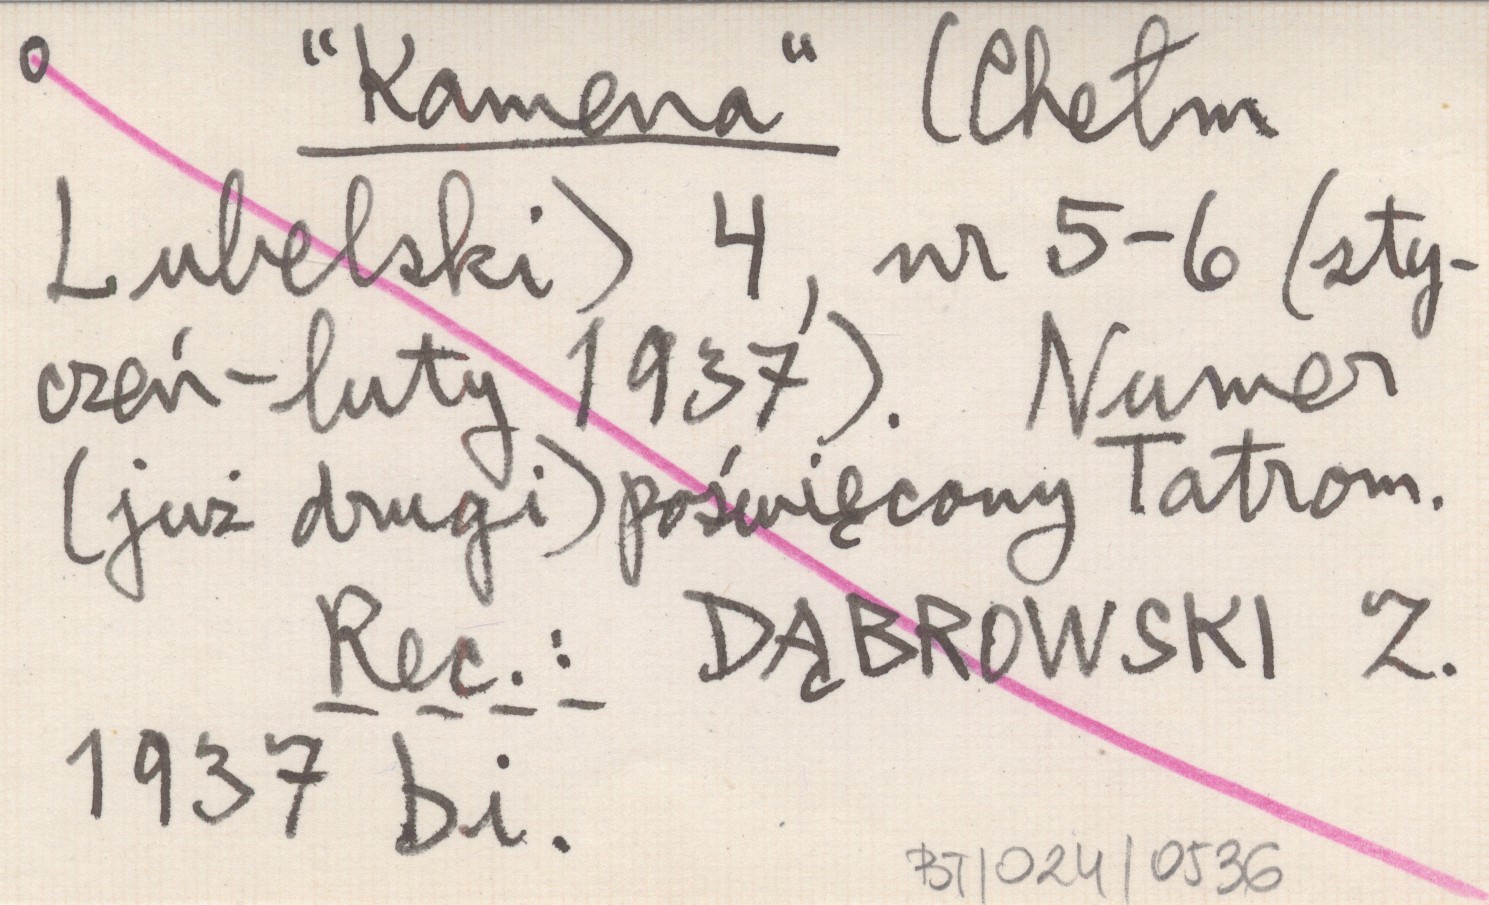 o "Kamena" (Chełm
Lubelski) 4, nr 5-6 (sty-
czeń-luty 1937). Numer
(już drugi) poświęcony Tatrom.
Rec.: DĄBROWSKI Z.
1937 bi.
BT/024/0536